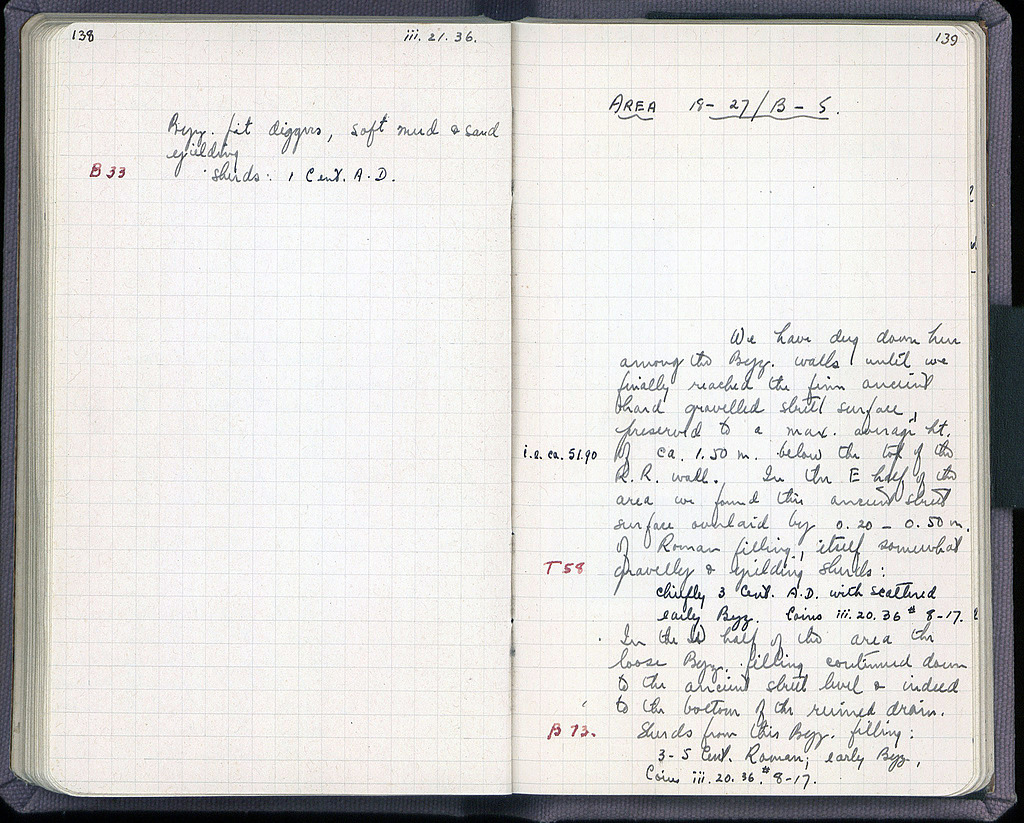 138
iii. 21. 36.
Byz. pit diggers, soft mud & sand
yielding
B 33
sherds: 1 Cent. A.D.
139
AREA 18-27/B-S.
We have dug down here
among the Byz. walls until we
finally reached the firm ancient
hard gravelled street surface,
preserved to a max. average ht.
i.e. ca. 51.90
of ca. 1.50 m. below the top of the
R.R. wall. In the E half of the
area we found this ancient street
surface overlaid by 0.20 - 0.50 m.
of Roman filling, itself somewhat
T 58
gravelly & yielding sherds:
chiefly 3 Cent. A.D. with scattered
early Byz. Coins iii.20.36 # 8-17.
In the W half of the area the
loose Byz. filling continued down
to the ancient street level & indeed
to the bottom of the ruined drain.
B 73.
Sherds from this Byz. filling:
3-5 Cent. Roman; early Byz,
Coins iii. 20. 36. # 8-17.